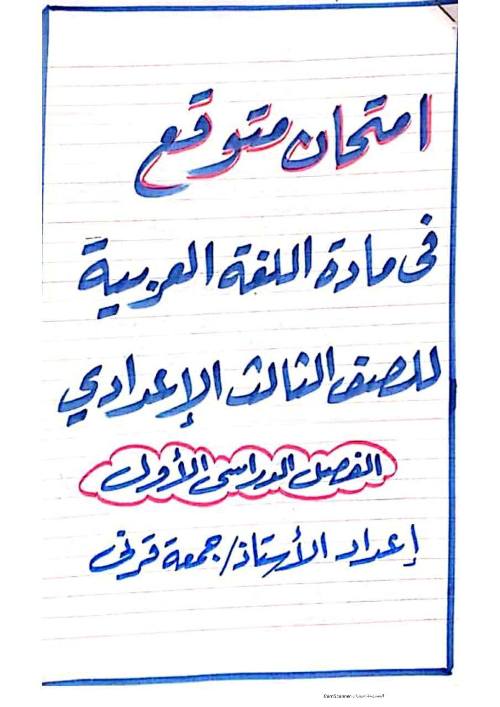 امتحان متوقع
فى مادة اللغة العربية
للصف الثالث الإعدادي
الفصل الدراسى الأول
إعداد الأستاذ/ جمعة قرنى